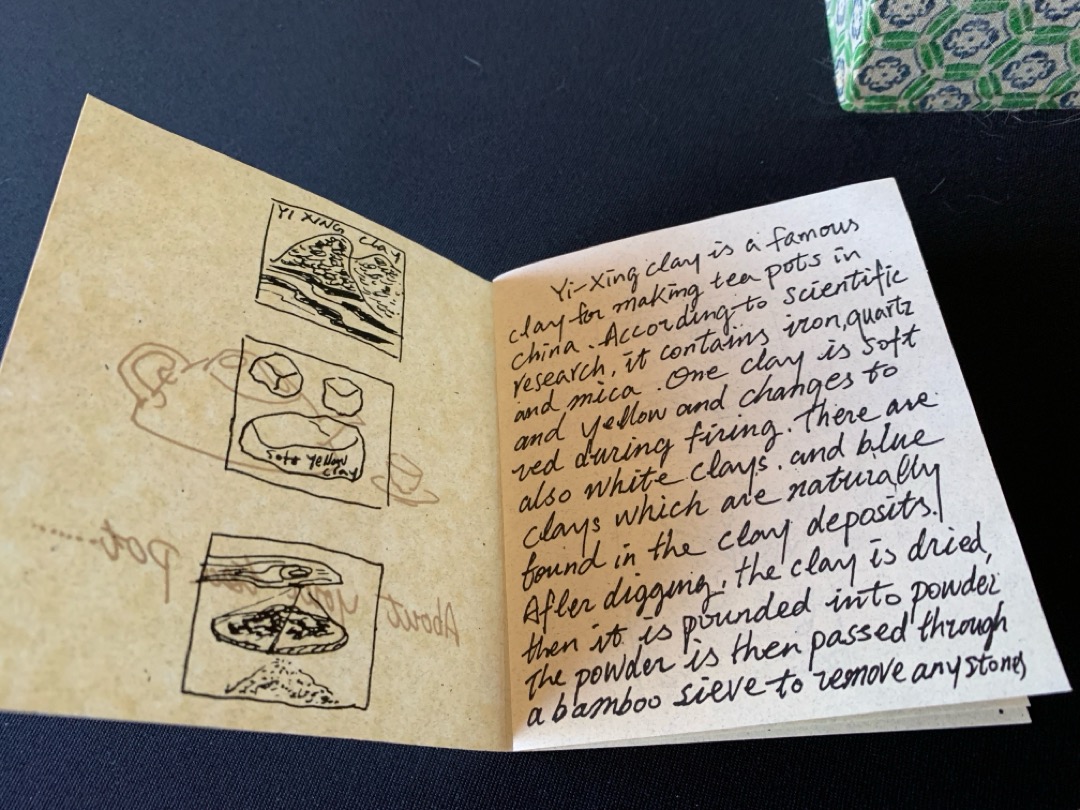 YI XING Clay
Soft Yellow
Clay
About your tea
pot......
Yi-Xing clay is a famous
clay for making tea pots in
china. According to scientific
research, it contains iron, quartz
and mica. One clay is soft
and yellow and changes to
red during firing. There are
also white clays. and blue
clays which are naturally
found in the clay deposits.
After digging, the clay is dried,
then it is pounded into powder
The powder is then passed through
a bamboo sieve to remove any stones